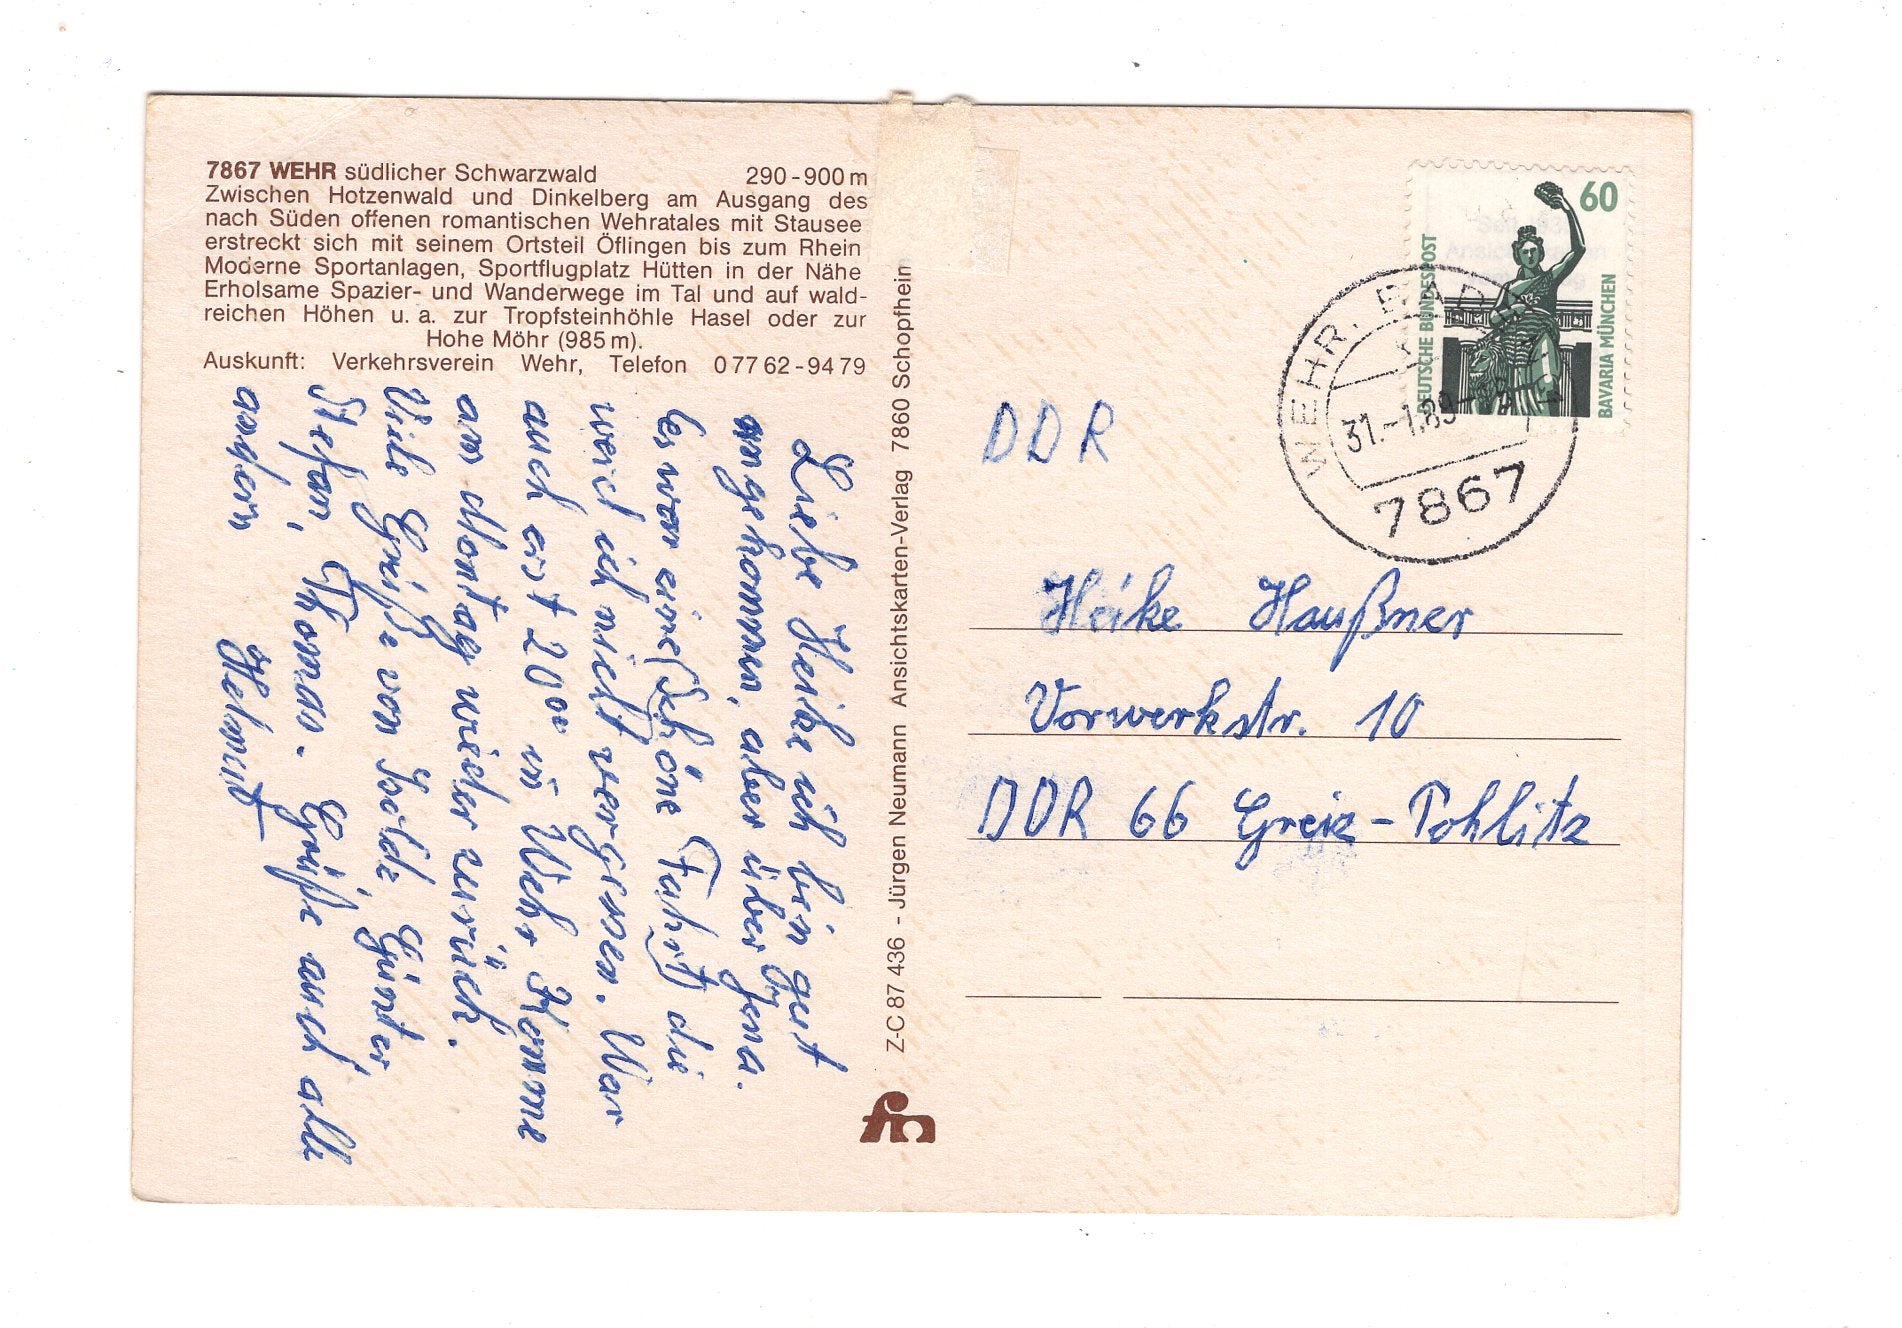 7867 WEHR südlicher Schwarzwald 290-900 m
Zwischen Hotzenwald und Dinkelberg am Ausgang des
nach Süden offenen romantischen Wehratales mit Stausee
erstreckt sich mit seinem Ortsteil Öflingen bis zum Rhein
Moderne Sportanlagen, Sportflugplatz Hütten in der Nähe
Erholsame Spazier- und Wanderwege im Tal und auf wald-
reichen Höhen u. a. zur Tropfsteinhöhle Hasel oder zur
Hohe Möhr (985 m).
Auskunft: Verkehrsverein Wehr, Telefon 0 77 62 - 94 79
Liebe Heike ich bin gut
angekommen, aber über Jena.
(es war eine schöne Fahrt) die
werd ich nicht vergessen. War
auch erst 20⁰⁰ in Wehr Komme
am Montag wieder zurück.
Viele Grüße von Isolde Günter,
Stefan, Thomas. Grüße auch alle
andern
Helmut
Z-C 87 436 - Jürgen Neumann Ansichtskarten-Verlag 7860 Schopfheim
fn
60
DEUTSCHE BUNDESPOST
BAVARIA MÜNCHEN
WEHR, BAD
31.-1.89-
7867
DDR
Heike Haußner
Vorwerkstr. 10
DDR 66 Greiz-Pohlitz